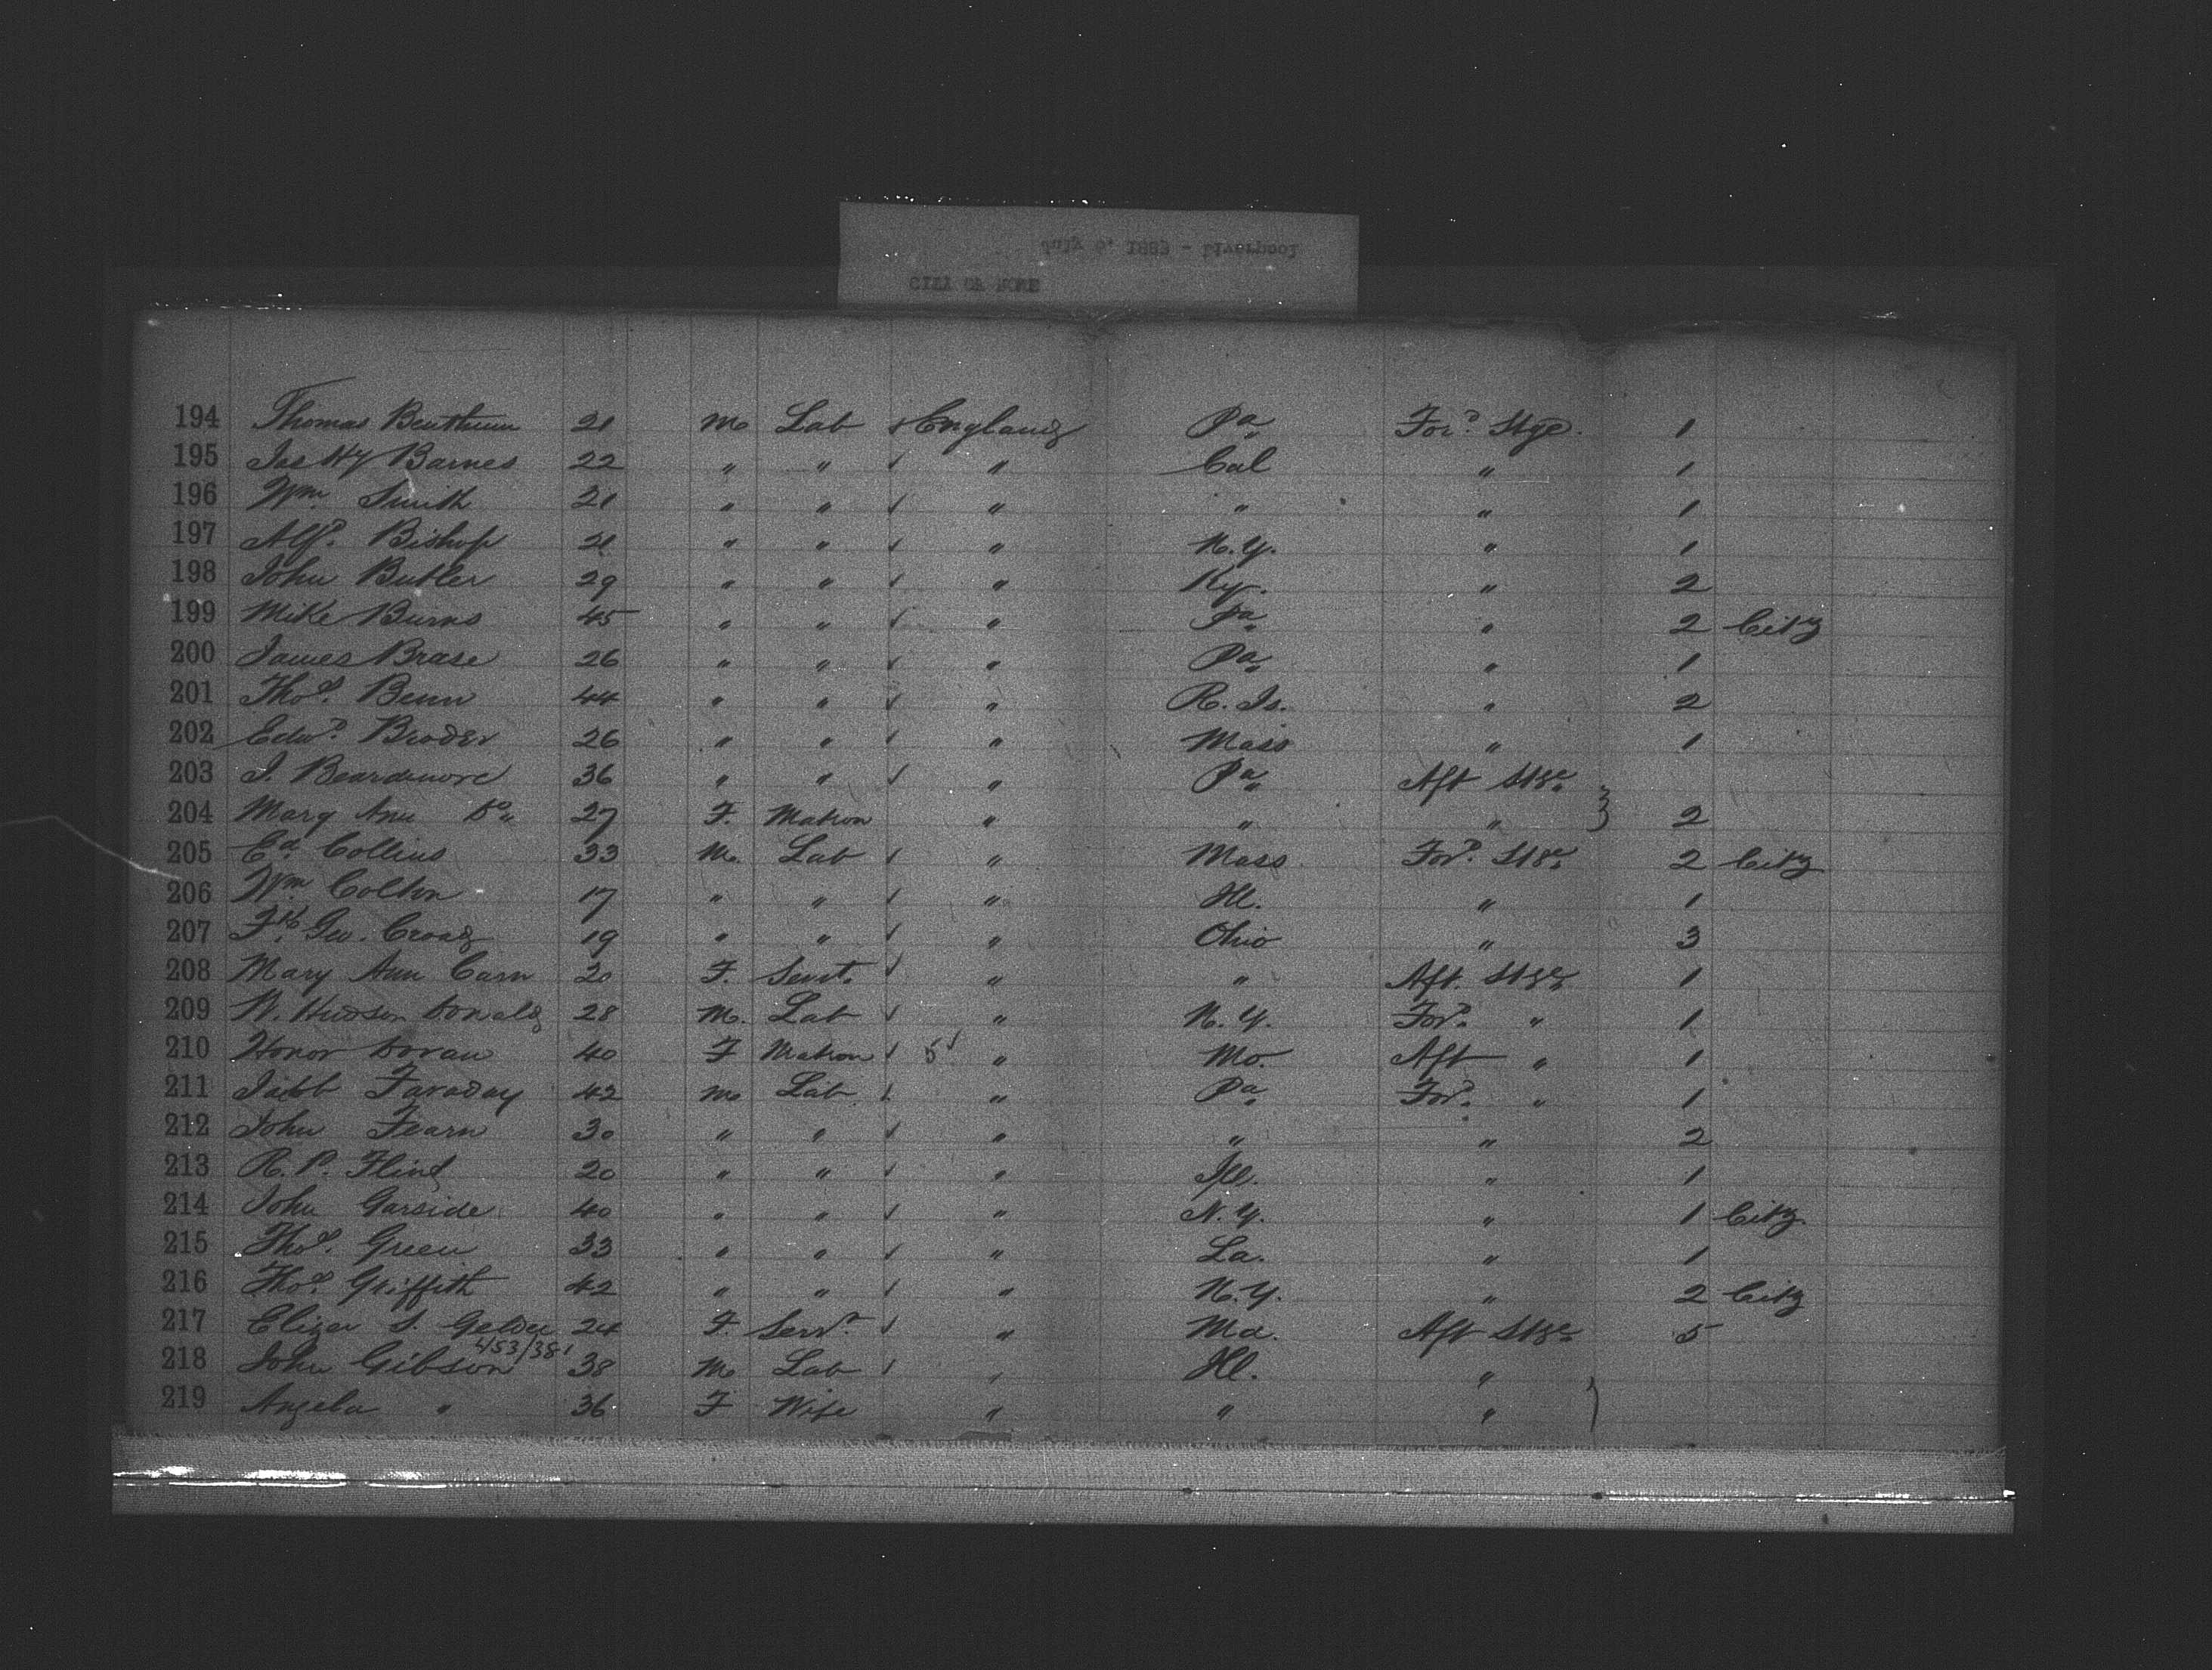 July 6, 1883 - Liverpool
CITY OF ROME
194 Thomas 21 M Lab ✓ England Pa For.d Stge. 1
195 Jas Hy Barnes 22 " " ✓ " Cal " 1
196 Wm. Smith 21 " " ✓ " " " 1
197 Alf.d Bishop 21 " " ✓ " N.Y. " 1
198 John Butler 29 " " ✓ " Ky. " 2
199 Mike Burns 45 " " ✓ " Pa " 2 Citz
200 James Brase 26 " " ✓ " Pa " 1
201 Thos. Benn 44 " " ✓ " R. Is. " 2
202 Edw.d Broder 26 " " ✓ " Mass " 1
203 J. Beardmore 36 " " ✓ " Pa Aft Stge
204 Mary Ann Do 27 F. Matron " " " 2
205 Ed Collins 33 M. Lab ✓ " Mass For.d Stge 2 Citz
206 Wm Colton 17 " " ✓ " Ill. " 1
207 Geo. 19 " " ✓ " Ohio " 3
208 Mary Ann Carn 20 F. Servt. ✓ " " Aft. Stge 1
209 W. Hudson Donald 28 M. Lab ✓ " N.Y. For.d " 1
210 Honor Doran 40 F Matron ✓ 5 ✓ " Mo. Aft " 1
211 Faraday 42 M Lab ✓ " Pa For.d " 1
212 John Fearn 30 " " ✓ " " " 2
213 R. P. Flind 20 " " ✓ " Ill. " 1
214 John Garside 40 " " ✓ " N.Y. " 1 Citz.
215 Thos. Green 33 " " ✓ " La. " 1
216 Thos. Griffith 42 " " ✓ " N.Y. " 2 Citz
217 Eliza S. 24 F. Serv.t ✓ " Md. Aft Stge 5
4/53/381
218 John Gibson 38 M Lab ✓ " Ill. "
219 Angela " 36 F Wife " " "